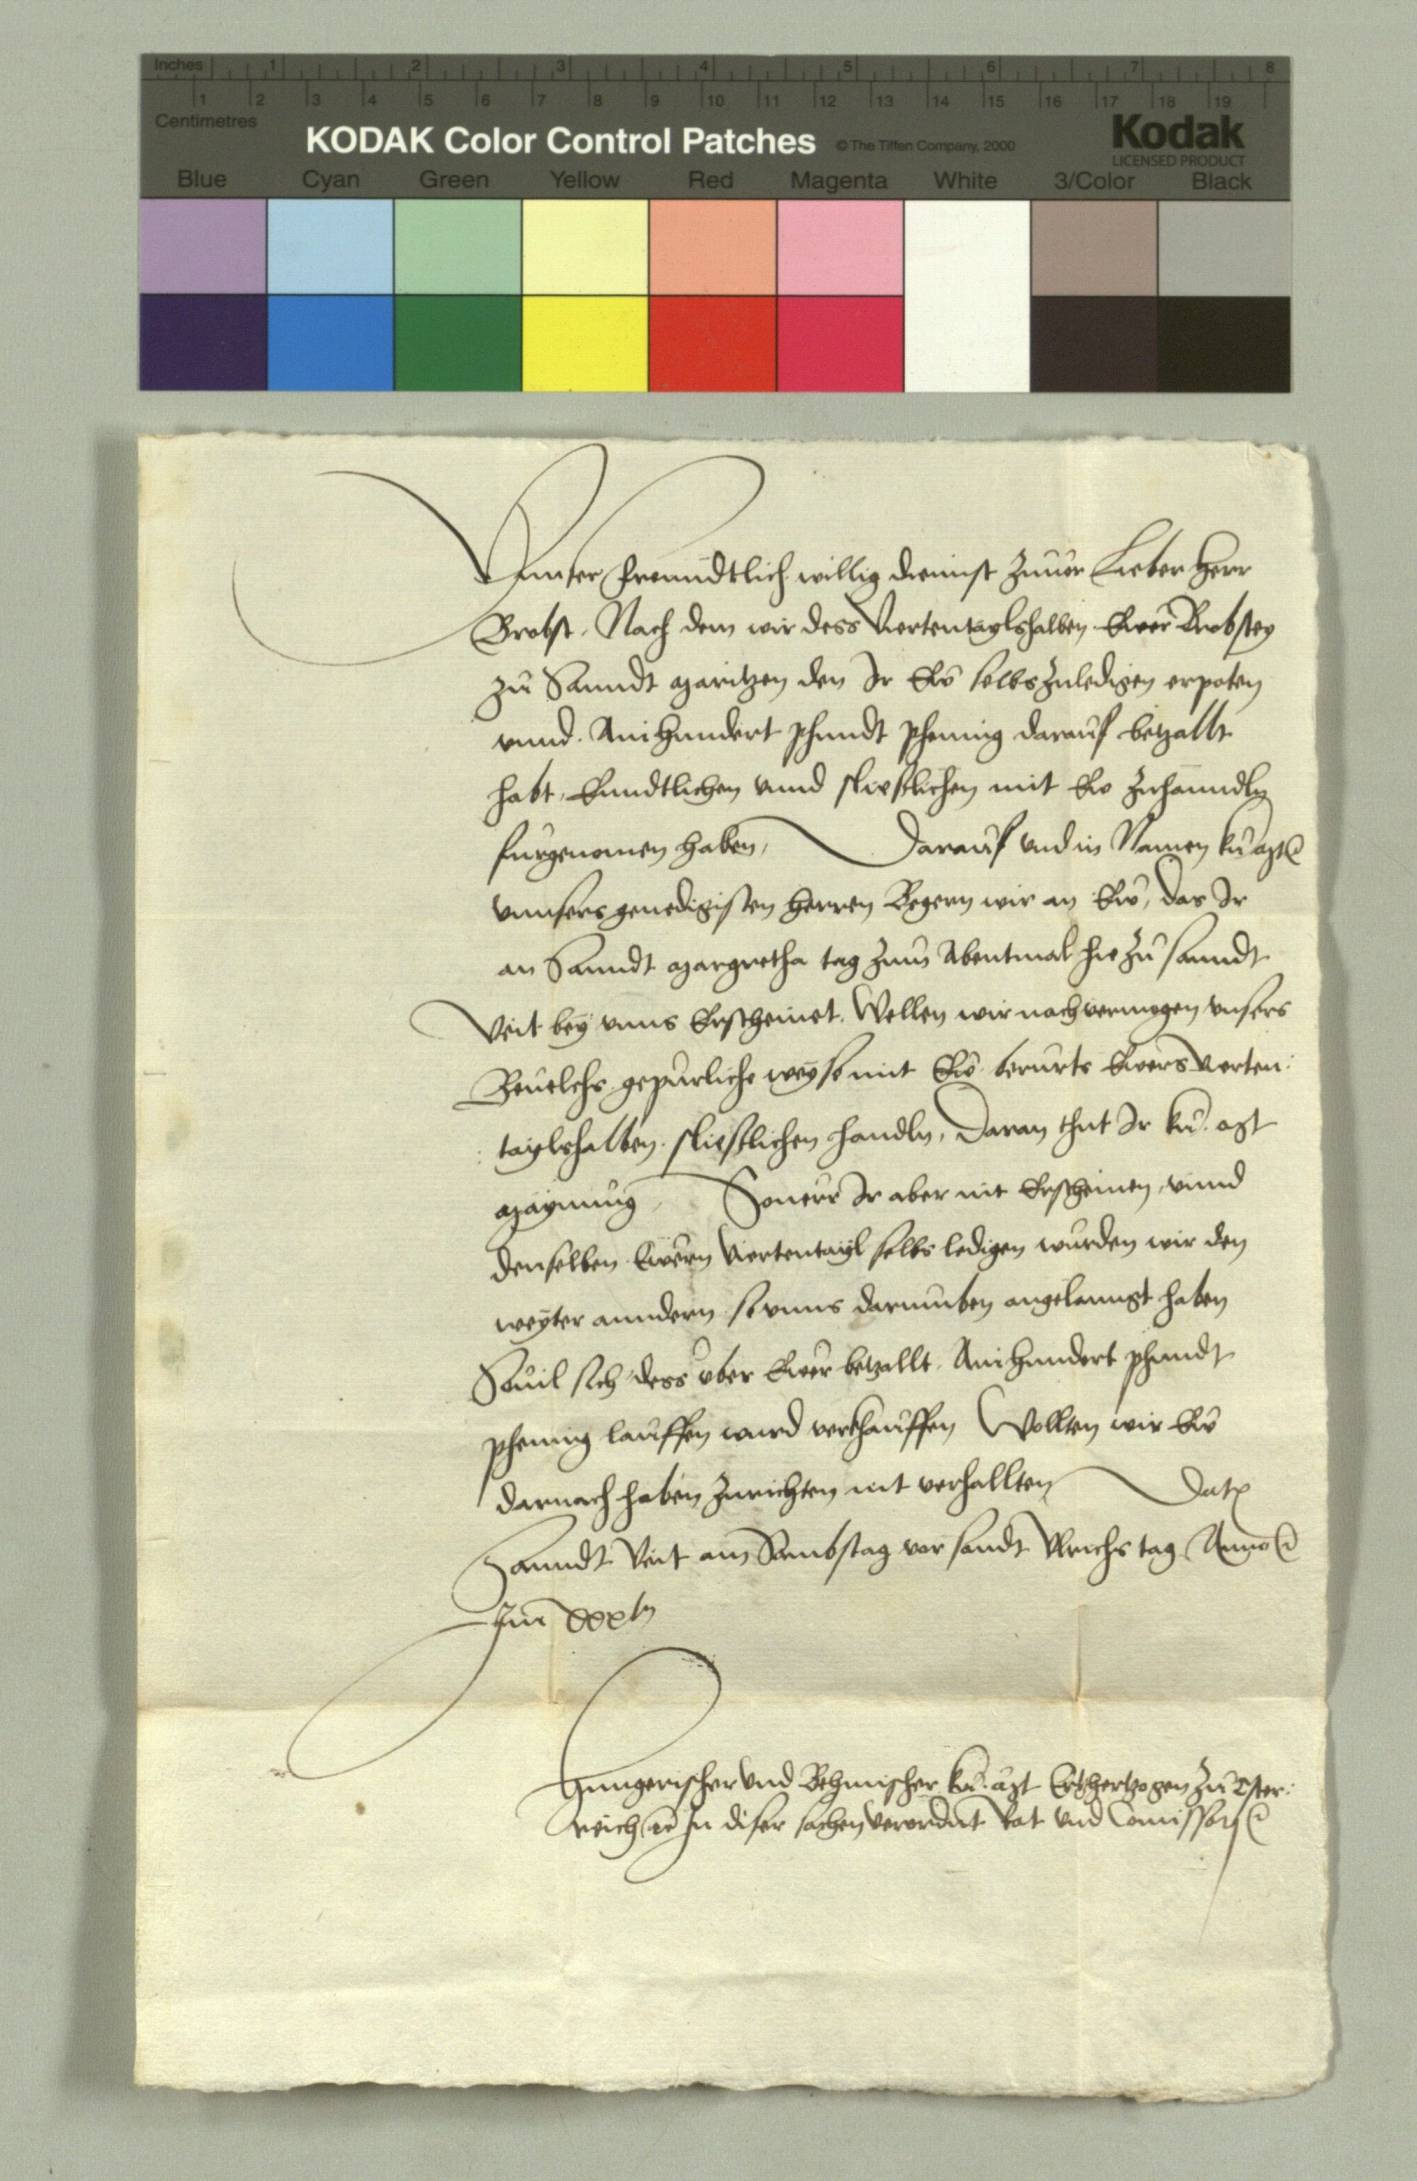 Inches 1 2 3 4 5 6 7 8
1 2 3 4 5 6 7 8 9 10 11 12 13 14 15 16 17 18 19
Centimetres
KODAK Color Control Patches © The Tiffen Company, 2000 Kodak
LICENSED PRODUCT
Blue Cyan Green Yellow Red Magenta White 3/Color Black
Vnnser freunndtlich willig diennst zuuor Lieber herr
Brobst, Nach dem wir dess Viertentaylshalben Ewer Brobstey
zu Sanndt Maritzen den Ir Ew selbs zuledigen erpoten
vnnd Ainhundert phundt phenning darauf betzallt
habt, Enndtlichen vnnd slieslichen mit Ew zuhanndln
furgenomen haben, Darauf vnd in Namen ku Mt
vnnsers genedigisten herren Begern wir an Ew, das Ir
an Sanndt Margretha tag zum Abentmal hie zu sanndt
Veit bey vnns Erscheinet. Wellen wir nach vermogen vnsers
Beuelchs gepurliche weyse mit Ew berurts Ewers vierten:
taylshalben slieslichen handln, Daran thut Ir ku. Mt
Maynung, Souerr Ir aber nit Erscheinen, vnnd
denselben Ewern Viertentayl selbs ledigen wurden wir den
weyter anndern so vnns darumben angelanngt haben
Souil sich dess vber Ewer betzallt Ainhundert phundt
phenning lauffen wurd verkhauffen Wollten wir Ew
darnach haben zurichten nit verhallten Dat
Sanndt Veit am Sambstag vor sandt Vlrichs tag Anno
Im xxx
Hungerischer vnd Behmischer ku. Mt Ertzhertzogen zu Oster:
reich In diser sachen verordnt Rat vnd Comissari